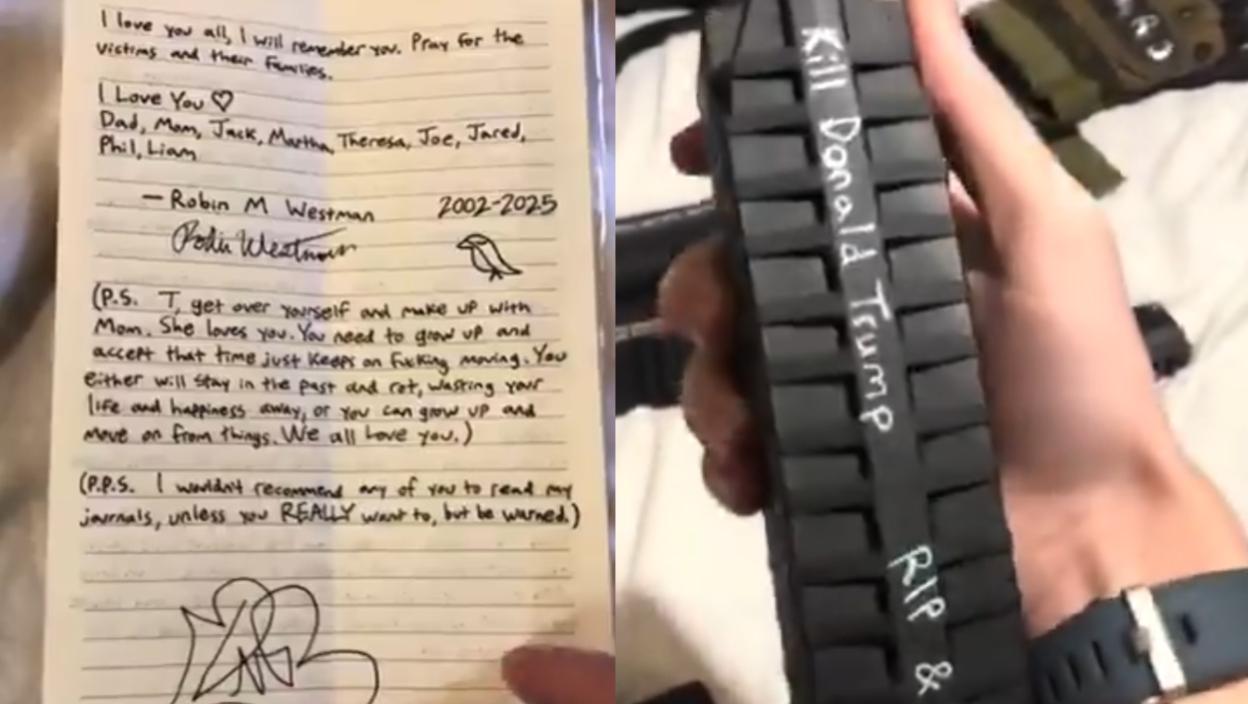 I love you all, I will remember you. Pray for the
victims and their families.
I Love You ♡
Dad, Mom, Jack, Martha, Theresa, Joe, Jared,
Phil, Liam
— Robin M Westman 2002-2025
Robin Westman
(P.S. T, get over yourself and make up with
Mom. She loves you. You need to grow up and
accept that time just keeps on fucking moving. You
either will stay in the past and rot, wasting your
life and happiness away, or you can grow up and
move on from things. We all love you.)
(P.P.S. I wouldn't recommend any of you to read my
journals, unless you REALLY want to, but be warned.)
Kill Donald Trump
RIP &